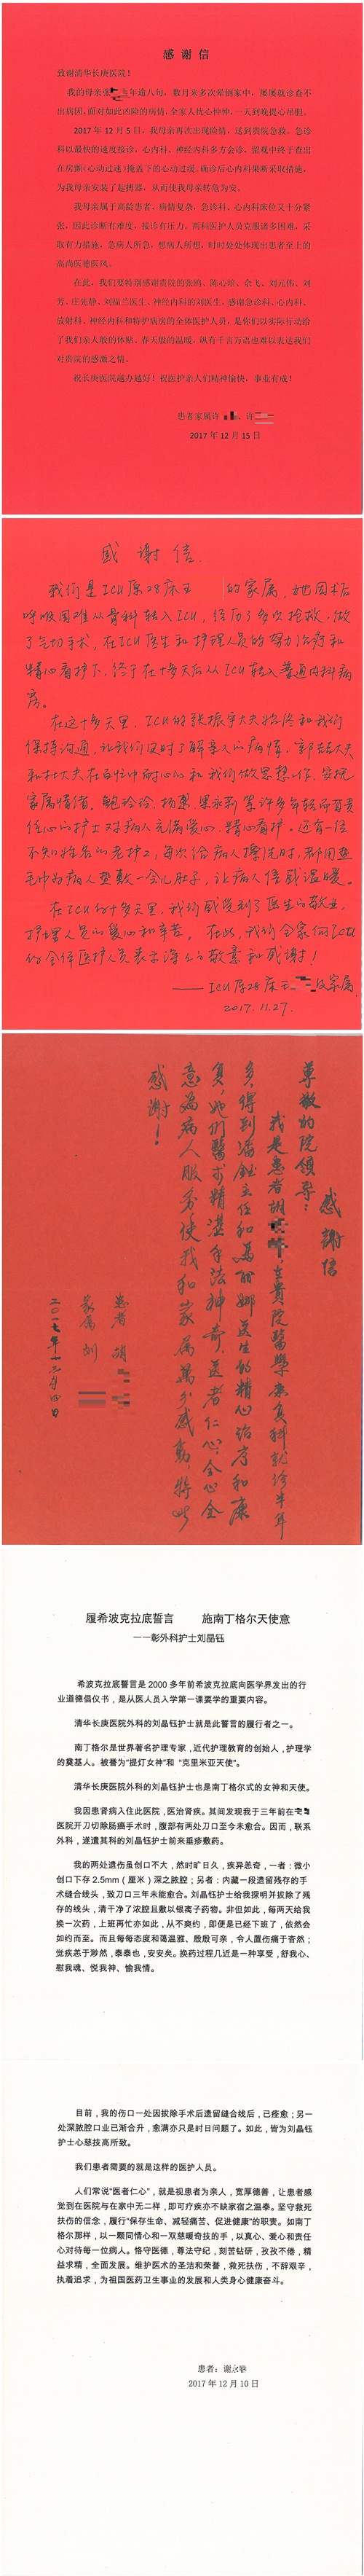 感 谢 信
致谢清华长庚医院！
我的母亲张年逾八旬，数月来多次晕倒家中，屡屡就诊查不
出病因，面对如此凶险的病情，全家人忧心忡忡，一天到晚提心吊胆。
2017 年 12 月 5 日，我母亲再次出现险情，送到贵院急救。急诊
科以最快的速度接诊，心内科、神经内科多方会诊，留观中终于查出
在房颤（心动过速）掩盖下的心动过缓。确诊后心内科果断采取措施，
为我母亲安装了起搏器，从而使我母亲转危为安。
我母亲属于高龄患者，病情复杂，急诊科、心内科床位又十分紧
张，因此诊断有难度，接诊有压力。两科医护人员克服诸多困难，采
取有力措施，急病人所急，想病人所想，时时处处体现出患者至上的
高尚医德医风。
在此，我们要特别感谢贵院的张鸥、陈心培、佘飞、刘元伟、刘
芳、庄先静、刘福兰医生、神经内科的刘医生，感谢急诊科、心内科、
放射科、神经内科和特护病房的全体医护人员，是你们以实际行动给
了我们亲人般的体贴，春天般的温暖，纵有千言万语也难以表达我们
对贵院的感激之情。
祝长庚医院越办越好！祝医护亲人们精神愉快，事业有成！
患者家属许 、许
2017 年 12 月 15 日
感 谢 信
我们是ICU原28床王 的家属，她因术后
呼吸困难从骨科转入ICU，经历了多次抢救，做
了气切手术，在ICU医生和护理人员的努力治疗和
精心看护下，终于在十多天后从ICU转入普通内科病
房。
在这十多天里，ICU的张振宇大夫始终和我们
保持沟通，让我们及时了解亲人的病情，郭大夫
和杜大夫在百忙中耐心的和我们做思想工作，安抚
家属情绪。鲍玲玲、杨、梁永莉等许多年轻而有责
任心的护士对病人充满爱心，精心看护。还有一位
不知姓名的老护工，每次给病人擦洗时，都用热
毛巾为病人垫敷一会儿肚子，让病人倍感温暖。
在ICU的十多天里，我们感受到了医生的敬业，
护理人员的爱心和辛苦。在此，我们全家向ICU
的全体医护人员表示深深的敬意和感谢！
——ICU原28床王及家属
2017.11.27.
感謝信
尊敬的院领导：
我是患者胡，在貴院醫學康复科就诊半年
多，得到潘钰主任和馬丽娜医生的精心治疗和康
复，她们醫术精湛手法神奇，医者仁心，全心全
意為病人服务使我和家属萬分感動，特此
感謝！
患者 胡
家属 刘
二〇一七年十二月四日
履希波克拉底誓言 施南丁格尔天使意
——彰外科护士刘晶钰
希波克拉底誓言是 2000 多年前希波克拉底向医学界发出的行
业道德倡仪书，是从医人员入学第一课要学的重要内容。
清华长庚医院外科的刘晶钰护士就是此誓言的履行者之一。
南丁格尔是世界著名护理专家，近代护理教育的创始人，护理学
的奠基人。被誉为“提灯女神”和 “克里米亚天使”。
清华长庚医院外科的刘晶钰护士也是南丁格尔式的女神和天使。
我因患肾病入住此医院，医治肾疾。其间发现我于三年前在
医院开刀切除肠癌手术时，腹部有两处刀口至今未愈合。因而，联系
外科，遂遣其科的刘晶钰护士前来垂疹敷药。
我的两处遗伤虽创口不大，然时旷日久，疾异恙奇，一者：微小
创口下存 2.5mm（厘米）深之脓腔；另者：内藏一段遗留残存的手
术缝合线头，致刀口三年未能愈合。刘晶钰护士给我探明并拔除了残
存的线头，清干净了浓腔且敷以银离子药物。非但如此，每两天给我
换一次药，上班再忙亦如此，从不爽约，即便是已经下班了，依然会
如约而至。而且每每态度和蔼温雅、殷殷可亲，令人置伤痛于杳然；
觉疾恙于渺然，泰泰也，安安矣。换药过程几近是一种享受，舒我心、
慰我魂、悦我神、愉我情。
目前，我的伤口一处因拔除手术后遗留缝合线后，已痊愈；另一
处深脓腔口业已渐合升，愈满亦只是时日问题了。如此，皆为刘晶钰
护士心慈技高所致。
我们患者需要的就是这样的医护人员。
人们常说“医者仁心”，就是视患者为亲人，宽厚德善，让患者感
觉到在医院与在家中无二样，即可疗疾亦不缺家宿之温泰。坚守救死
扶伤的信念，履行“保存生命、减轻痛苦、促进健康”的职责。如南丁
格尔那样，以一颗同情心和一双慈暖奇技的手，以真心、爱心和责任
心对待每一位病人。恪守医德，尊法守纪，刻苦钻研，孜孜不倦，精
益求精，全面发展。维护医术的圣洁和荣誉，救死扶伤，不辞艰辛，
执着追求，为祖国医药卫生事业的发展和人类身心健康奋斗。
患者：谢永
2017 年 12 月 10 日